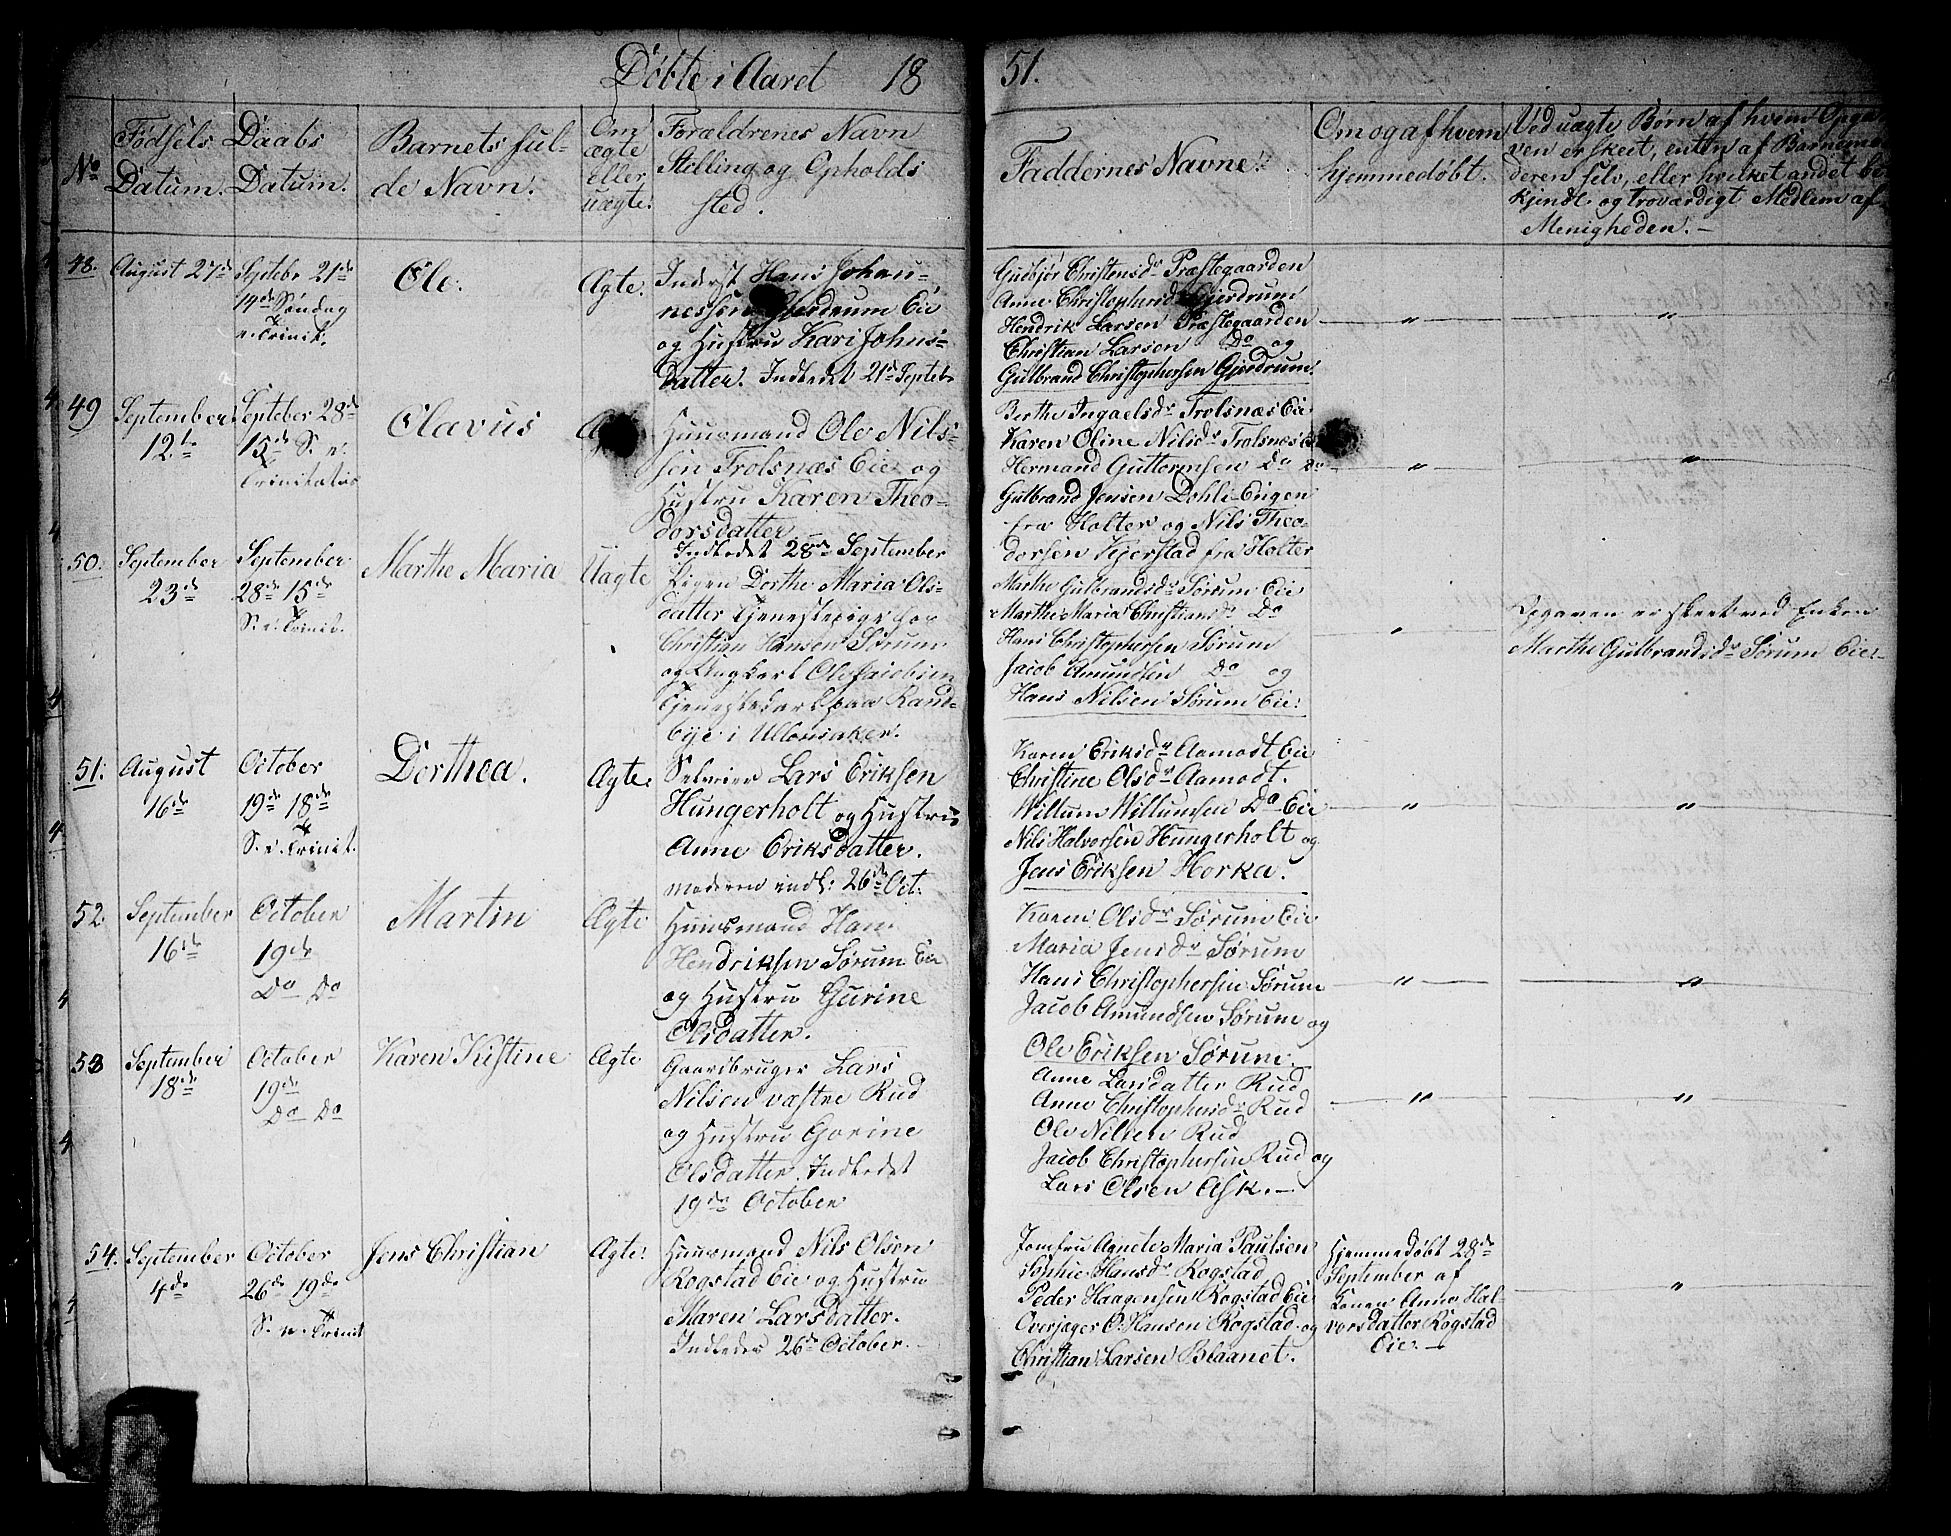 Døbte i Aaret 18 51.
No
Fødsels Datum.
Daabs Datum.
Barnets ful-
de Navn.
Om
ægte
eller
uægte.
Forældrenes Navn
Stilling og Opholds
sted.
Faddernes Navne.
Om og af hvem
hjemmedøbt.
Ved uægte Børn af hvem Opga-
ven er skeet, enten af Barnemo-
deren selv, eller hvilket andet be-
kjendt og troværdigt Medlem af
Menigheden.
48.
August 27de
Septebr 21de
14de Søndag
e. Trinit.
Ole.
Ægte.
Inderst Hans Johan-
nessen Gjerdrum Eie
og Hustru Kari Johns-
datter. Indledet 21de Septeb
Gudbjør Christensdr Præstegaarden
Anne Christophersd Gjerdrum
Hendrik Larsen Præstegaarden
Christian Larsen Do og
Gulbrand Christophersen Gjerdrum.
"
"
49
September
12te
Septeber 28de
15de S. e.
Trinitatis
Olavus
Æg
Huusmand Ole Nils-
sen Trolsnæs Eie og
Hustru Karen Theo-
dorsdatter
Indledet 28de September
Berthe Ingaelsdr Trolsnæs Eie
Karen Oline Nilsdr Trolsnæs Eie
Hermand Guttormsen Do Do
Gulbrand Jensen Dohli-Engen
fra Holter og Nils Theo-
dorsen Kjerstad fra Holter
"
"
50.
September
23de
September
28de 15de
S. e. Trinit.
Marthe Maria
Uægte
Pigen Dorthe Maria Ols-
datter Tjenestepige hos
Christian Hansen Sørum
og Ungkarl Ole Jacobsen
Tjenestekarl paa Rand-
bye i Ullensaker.
Marthe Gulbrandsdr Sørum Eie
Marthe Maria Christiansdr Do
Hans Christophersen Sørum
Jacob Amundsen Do og
Hans Nilsen Sørum Eie.
"
Opgaven er skeet ved Enken
Marthe Gulbrandsdr Sørum Eie.
51.
August
16de
October
19de 18de
S. e. Trinit.
Dorthea.
Ægte.
Selveier Lars Eriksen
Hungerholt og Hustru
Anne Eriksdatter.
moderen indl: 26de Oct.
Karen Eriksdr Aamodt Eie
Christine Olsdr Aamodt.
Willum Willumsen Do Eie
Nils Halvorsen Hungerholt og
Jens Eriksen Horka.
"
"
52.
September
16de
October
19de
Do Do
Martin
Ægte
Huusmand Han
Hendriksen Sørum Eie
og Hustru Gurine
Olsdatter.
Karen Olsdr Sørum Eie
Maria Jensdr Sørum
Hans Christophersen Sørum
Jacob Amundsen Sørum og
Ole Eriksen Sørum.
"
"
53
September
18de
October
19de
Do Do
Karen Kistine
Ægte
Gaardbruger Lars
Nilsen væstre Rud
og Hustru Gorine
Olsdatter. Indledet
19de October
Anne Larsdatter Rud
Anne Christophersdr Rud
Ole Nilsen Rud
Jacob Christophersen Rud og
Lars Olsen Ask.
"
"
54.
September
4de
October
26de 19de
S. e. Trinit
Jens Christian
Ægte.
Huusmand Nils Olsen
Rogstad Eie og Hustru
Maren Larsdatter.
Indledes 26de October.
Jomfru Agnete Maria Paulsen
Sophie Hansdr Rogstad
Peder Haagensen Rogstad Eie
Overjæger O. Hansen Rogstad og
Christian Larsen Blaanet.
Hjemmedøbt 28de
September af
Konen Anne Hal-
vorsdatter Rogstad
Eie.
"